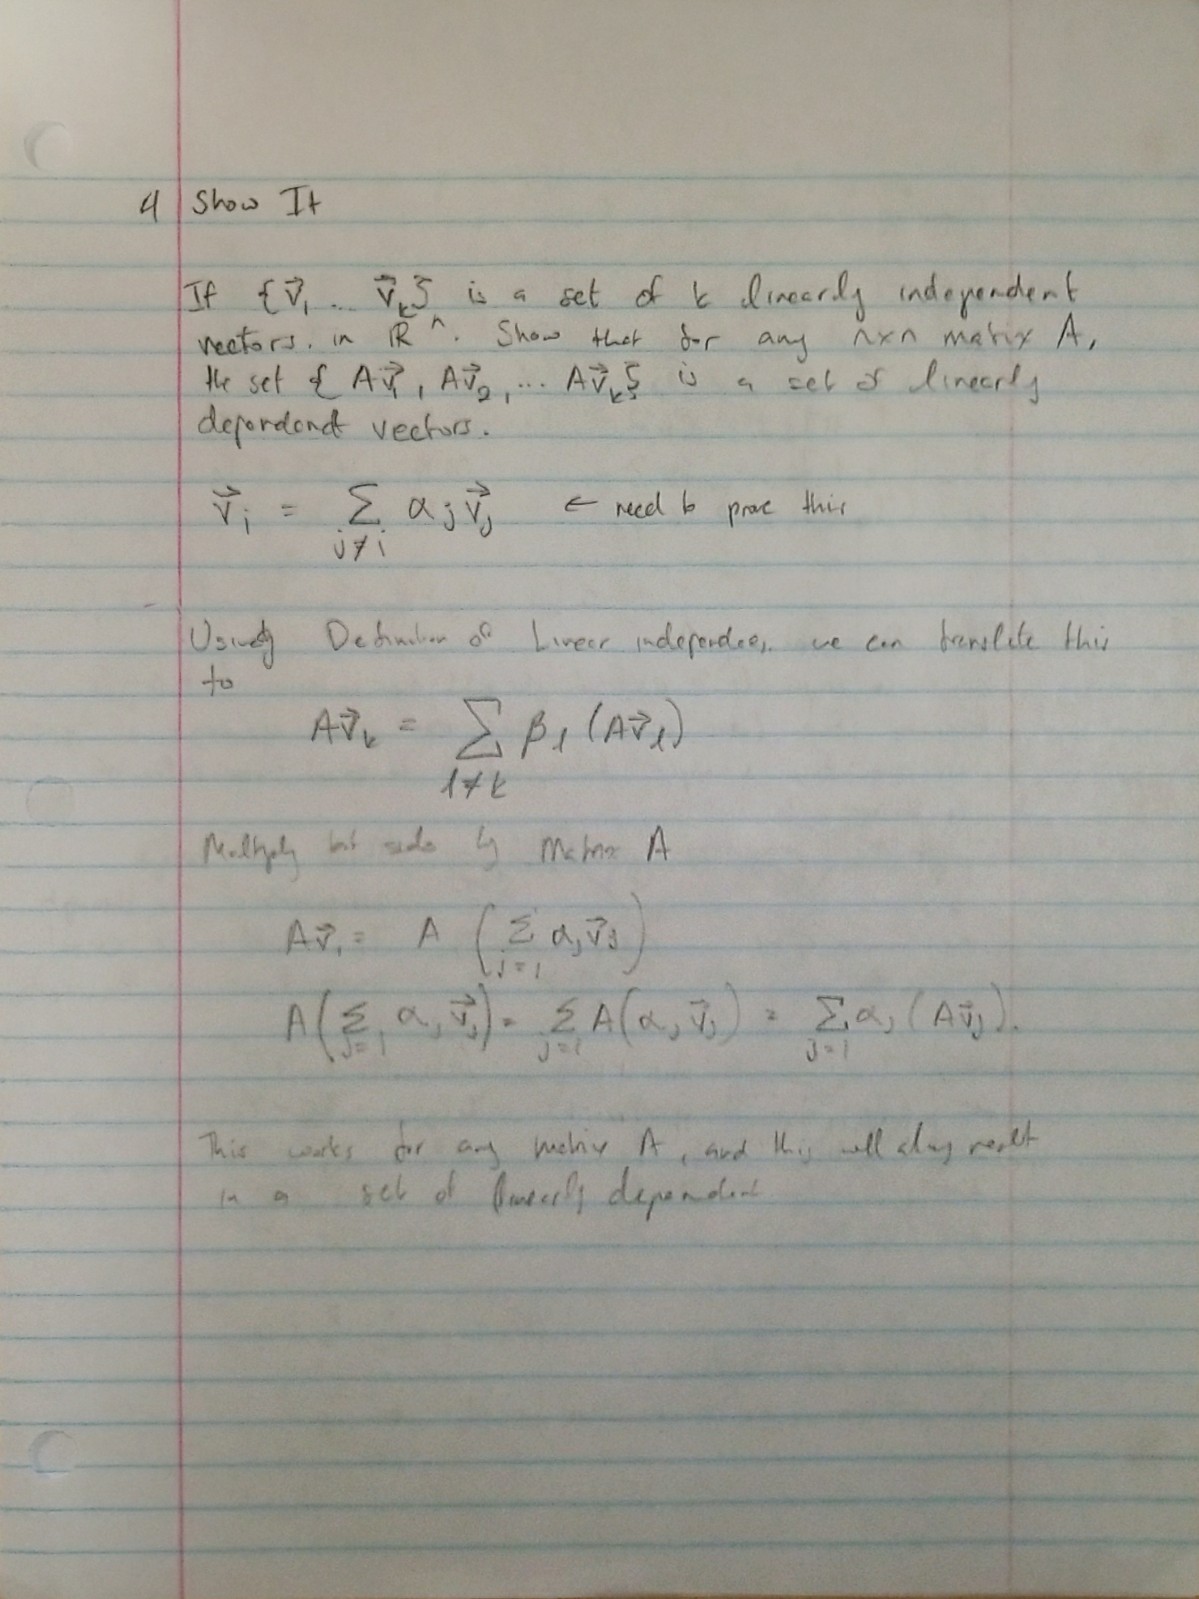 4 Show It
If {v⃗₁ ... v⃗ₖ} is a set of k linearly independent
vectors. in ℝⁿ. Show that for any n×n matrix A,
the set { Av⃗₁, Av⃗₂, ... Av⃗ₖ} is a set of linearly
dependent vectors.
v⃗ᵢ = Σ_{j≠i} αⱼv⃗ⱼ ← need to prove this
Using Definition of Linear independence, we can translate this
to
Av⃗ₖ = Σ_{l≠k} βₗ (Av⃗ₗ)
Multiply bot side by Matrix A
Av⃗ᵢ = A (Σ_{j=1} αⱼv⃗ⱼ)
A(Σ_{j=1} αⱼv⃗ⱼ) = Σ_{j=1} A(αⱼv⃗ⱼ) = Σ_{j=1} αⱼ (Av⃗ⱼ).
This works for any matrix A, and this will alway result
in a set of linearly dependent